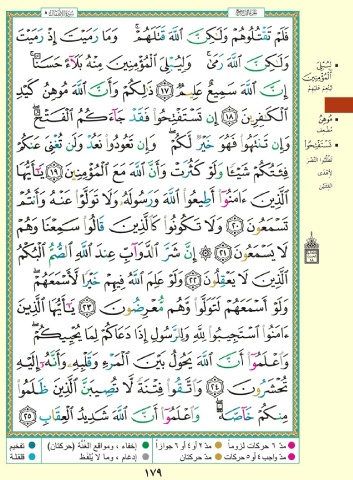 فَلَمْ تَقْتُلُوهُمْ وَلَٰكِنَّ اللَّهَ قَتَلَهُمْ وَمَا رَمَيْتَ إِذْ رَمَيْتَ
وَلَٰكِنَّ اللَّهَ رَمَىٰ وَلِيُبْلِيَ الْمُؤْمِنِينَ مِنْهُ بَلَاءً حَسَنًا
إِنَّ اللَّهَ سَمِيعٌ عَلِيمٌ ١٧ ذَٰلِكُمْ وَأَنَّ اللَّهَ مُوهِنُ كَيْدِ
الْكَافِرِينَ ١٨ إِن تَسْتَفْتِحُوا فَقَدْ جَاءَكُمُ الْفَتْحُ
وَإِن تَنتَهُوا فَهُوَ خَيْرٌ لَّكُمْ وَإِن تَعُودُوا نَعُدْ وَلَن تُغْنِيَ عَنكُمْ
فِئَتُكُمْ شَيْئًا وَلَوْ كَثُرَتْ وَأَنَّ اللَّهَ مَعَ الْمُؤْمِنِينَ ١٩ يَا أَيُّهَا
الَّذِينَ آمَنُوا أَطِيعُوا اللَّهَ وَرَسُولَهُ وَلَا تَوَلَّوْا عَنْهُ وَأَنتُمْ
تَسْمَعُونَ ٢٠ وَلَا تَكُونُوا كَالَّذِينَ قَالُوا سَمِعْنَا وَهُمْ
لَا يَسْمَعُونَ ٢١ إِنَّ شَرَّ الدَّوَابِّ عِندَ اللَّهِ الصُّمُّ الْبُكْمُ
الَّذِينَ لَا يَعْقِلُونَ ٢٢ وَلَوْ عَلِمَ اللَّهُ فِيهِمْ خَيْرًا لَّأَسْمَعَهُمْ
وَلَوْ أَسْمَعَهُمْ لَتَوَلَّوا وَّهُم مُّعْرِضُونَ ٢٣ يَا أَيُّهَا الَّذِينَ
آمَنُوا اسْتَجِيبُوا لِلَّهِ وَلِلرَّسُولِ إِذَا دَعَاكُمْ لِمَا يُحْيِيكُمْ
وَاعْلَمُوا أَنَّ اللَّهَ يَحُولُ بَيْنَ الْمَرْءِ وَقَلْبِهِ وَأَنَّهُ إِلَيْهِ
تُحْشَرُونَ ٢٤ وَاتَّقُوا فِتْنَةً لَّا تُصِيبَنَّ الَّذِينَ ظَلَمُوا
مِنكُمْ خَاصَّةً وَاعْلَمُوا أَنَّ اللَّهَ شَدِيدُ الْعِقَابِ ٢٥
لِيُبْلِيَ
الْمُؤْمِنِينَ
مُوهِنُ
مُضْعِف
تَسْتَفْتِحُوا
مدّ ٦ حركات لزوماً
مدّ ٢ أو ٤ أو ٦ جوازاً
إخفاء، ومواقع الغُنَّة (حركتان)
تفخيم
مدّ واجب ٤ أو ٥ حركات
مدّ حركتان
إدغام، وما لا يُلفَظ
قلقلة
١٧٩